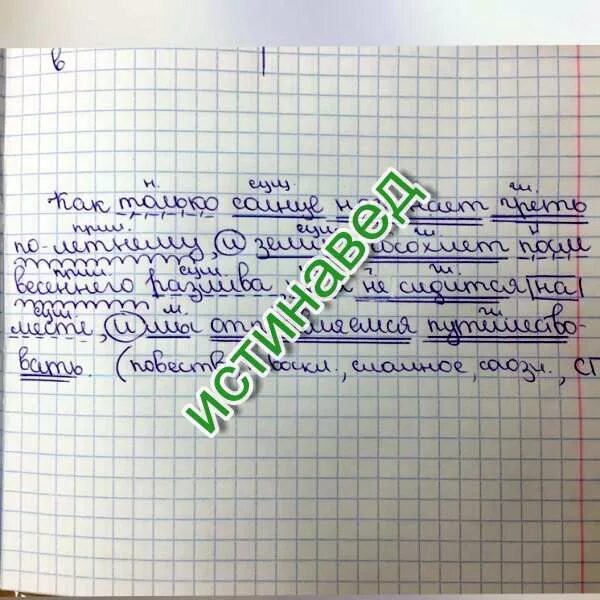 в
н. сущ. гл.
Как только солнце греть
прил. сущ. гл. н
по-летнему, и просохнет после
прил. сущ. гл.
весеннего разлива, не сидится на
сущ. м. гл.
месте, и мы отправляемся путешество-
вать. (повеств., воскл., сложное, союзн., СП
ИСТИНАВЕД